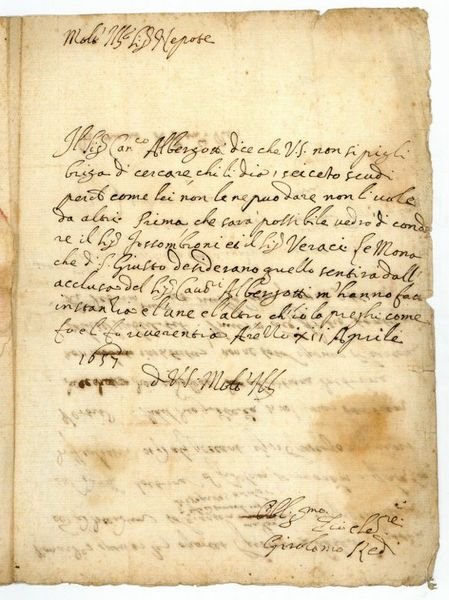 Molto Ill.re Sig.r Nepote
Il Sig.r Can.co Albergotti dice che V.S. non si pigli
briga di cercare chi li dia i seiceto scudi
però come lei non le ne puo dare non li vole
da altri Prima che sara possibile vedrò di
re il Sig.r Fossombroni et il Sig.r Veraci Le Mona
che di S. Giusto desiderano quello sentira dall'
acclusa del Sig.r Albergotti m'hanno fac
instantia e l'une e l'altro ch'io la preghi come
fo et fo riverentia Arezzo XII Aprile
1657
di V.S. Molto Ill.
Obblig.mo
Zio e Se.re
Girolamo Redi